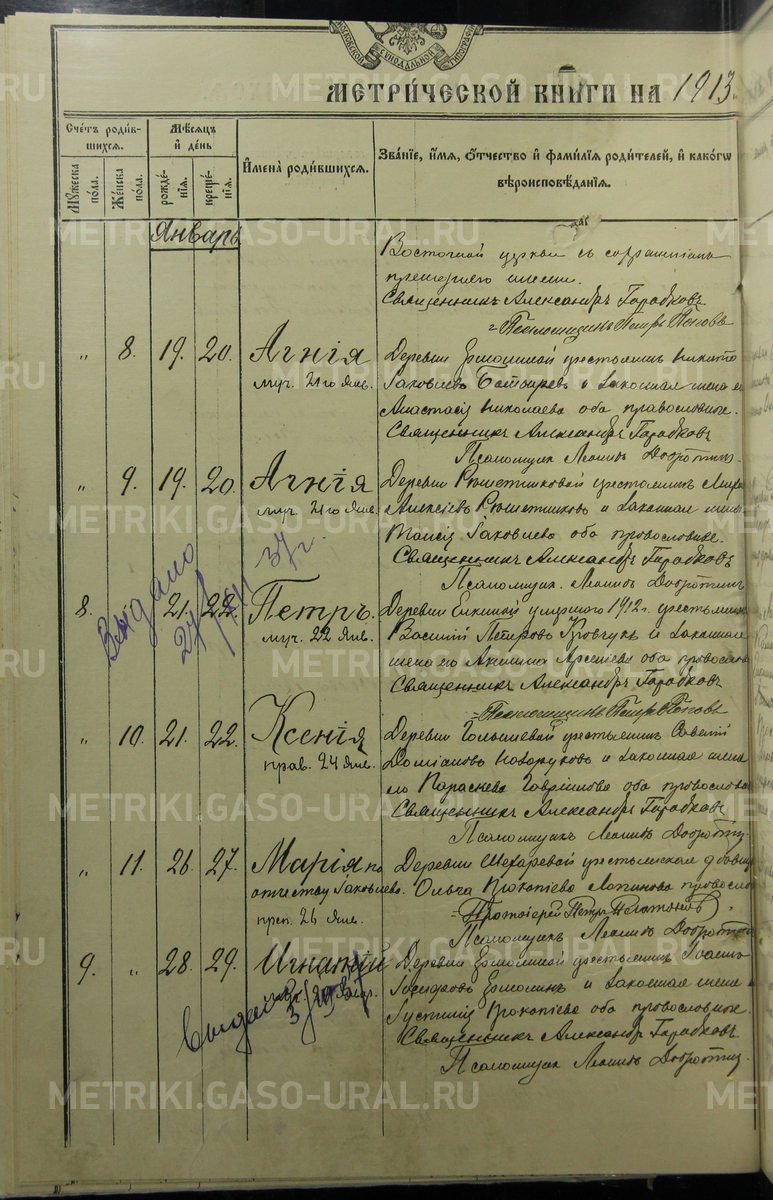 МЕТРИ́ЧЕСКОЙ КНИГИ НА 1913.
Сче́тъ роди́в-
шихся.
Мѣ́сяцъ
и́ де́нь
Му́жеска
по́ла.
Же́нска
по́ла.
рожде́-
нія.
креще́-
нія.
И́мена̀ роди́вшихся.
Зва́ніе, и́мя, о́тчество и́ фами́лія роди́телей, и́ како́гѡ
вѣроисповѣ́данія.
Январь
Восточной церкви съ сохраненіемъ
прежняго имени.
Священникъ Александръ Гарабковъ
Псаломщикъ Петръ Поповъ
„ 8. 19. 20. Агнія
муч. 21го Янв.
Деревни Ермолиной крестьянинъ Никита
Іаковлевъ и законная жена его
Анастасія Николаева оба православные.
Священникъ Александръ Гарабковъ
Псаломщик Леонидъ Добротин
„ 9. 19. 20. Агнія
муч. 21го Янв.
Деревни Рѣшетниковой крестьянинъ
Алексіевъ Рѣшетниковъ и законная жена
Таисія Іаковлева оба православные.
Священникъ Александръ Гарабковъ
Псаломщик. Леонидъ Добротин
8. 21. 22. Петръ.
муч. 22 Янв.
Выдано
Деревни умершаго 1912 г. крестьянина
Василій Петровъ и законная
жена его Акилина Арсеніева оба православ
Священникъ Александръ Гарабковъ
Псаломщикъ Петръ Поповъ
„ 10. 21. 22. Ксенія
прав. 24 Янв.
Деревни крестьянинъ Савелій
Доміановъ и законная жена
его Параскева Гавріилова оба православ
Священникъ Александръ Гарабковъ
Псаломщикъ Леонидъ Добротин
„ 11. 26. 27. Марія по
отчеству Іаковлева.
преп. 26 Янв.
Деревни крестьянская дѣвица
Ольга Прокопіева православ
Протоіерей Петръ
Псаломщикъ Леонидъ Добротин
9. „ 28. 29. Игнатій
Янв.
Выдано
Деревни Ермолиной крестьянинъ Іоаннъ
Ермолинъ и законная жена
Іустинія Прокопіева оба православные.
Священникъ Александръ Гарабковъ
Псаломщик Леонидъ Добротин
METRIKI.GASO-URAL.RU